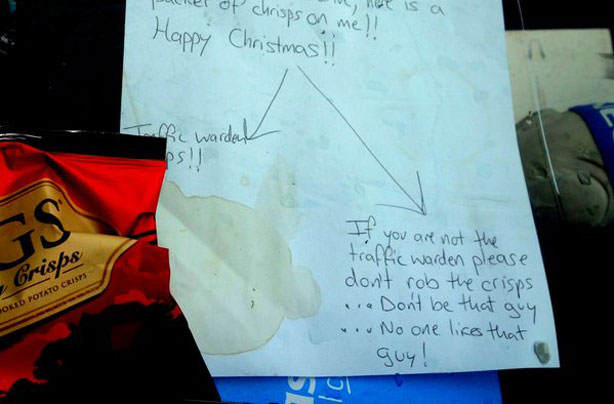 packer of chrisps on me!!
Happy Christmas!!
Traffic warden
ps!!
If you are not the
traffic warden please
don't rob the crisps
... Don't be that guy
... No one likes that
guy!
GS
Crisps
OOKED POTATO CRISPS